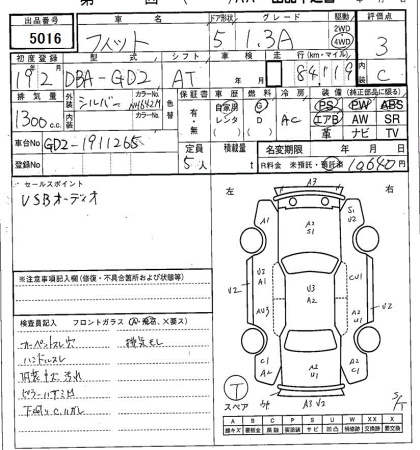 出品番号 車名 ドア形状 グレード 駆動 評価点
5016 フィット 5 1.3A 2WD 4WD 3
初度登録 型式 シフト 車検 走行(km・マイル) 内装
19 2 DBA-GD2 AT 年 月 84,119 C
排気量 外装 シルバー カラーNo NH642M 色替 保証書 車歴 燃料 冷房 装備(純正部品に限る)
1300 c.c. 内装 カラーNo 有・無 自家用 レンタ G D AC PS PW ABS
エアB AW SR
革 ナビ TV
車台No GD2-1911265
定員 積載量 名変期限 年 月 日
登録No 5人 R料金 未預託・預託済 10640円
セールスポイント
USBオーディオ
左 右
A3
A1 A2 S1 S1 V2
V2 V3 A1 V3 A2 CU1 V2
AV3
C1 A2 A2 U1 C1 A2
A3 V2
※注意事項記入欄(修復・不具合箇所および状態等)
検査員記入 フロントガラス(A・飛石、×要ス)
カーペットスレ 穴
ハンドルスレ
内装キズ 汚れ
T スペア
A B C P S U W XX X
線キズ 要板金 腐食 要塗装 サビ 凹凸 補修跡 交換跡 要交換